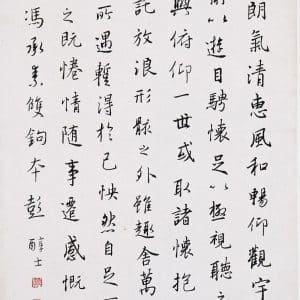 朗氣清惠風和暢仰觀宇
所以遊目騁懷足以極視聽之
與俯仰一世或取諸懷抱
託放浪形骸之外雖趣舍萬
所遇暫得於己怏然自足
之既惓情随事遷感慨
馮承素雙鉤本彭醇士